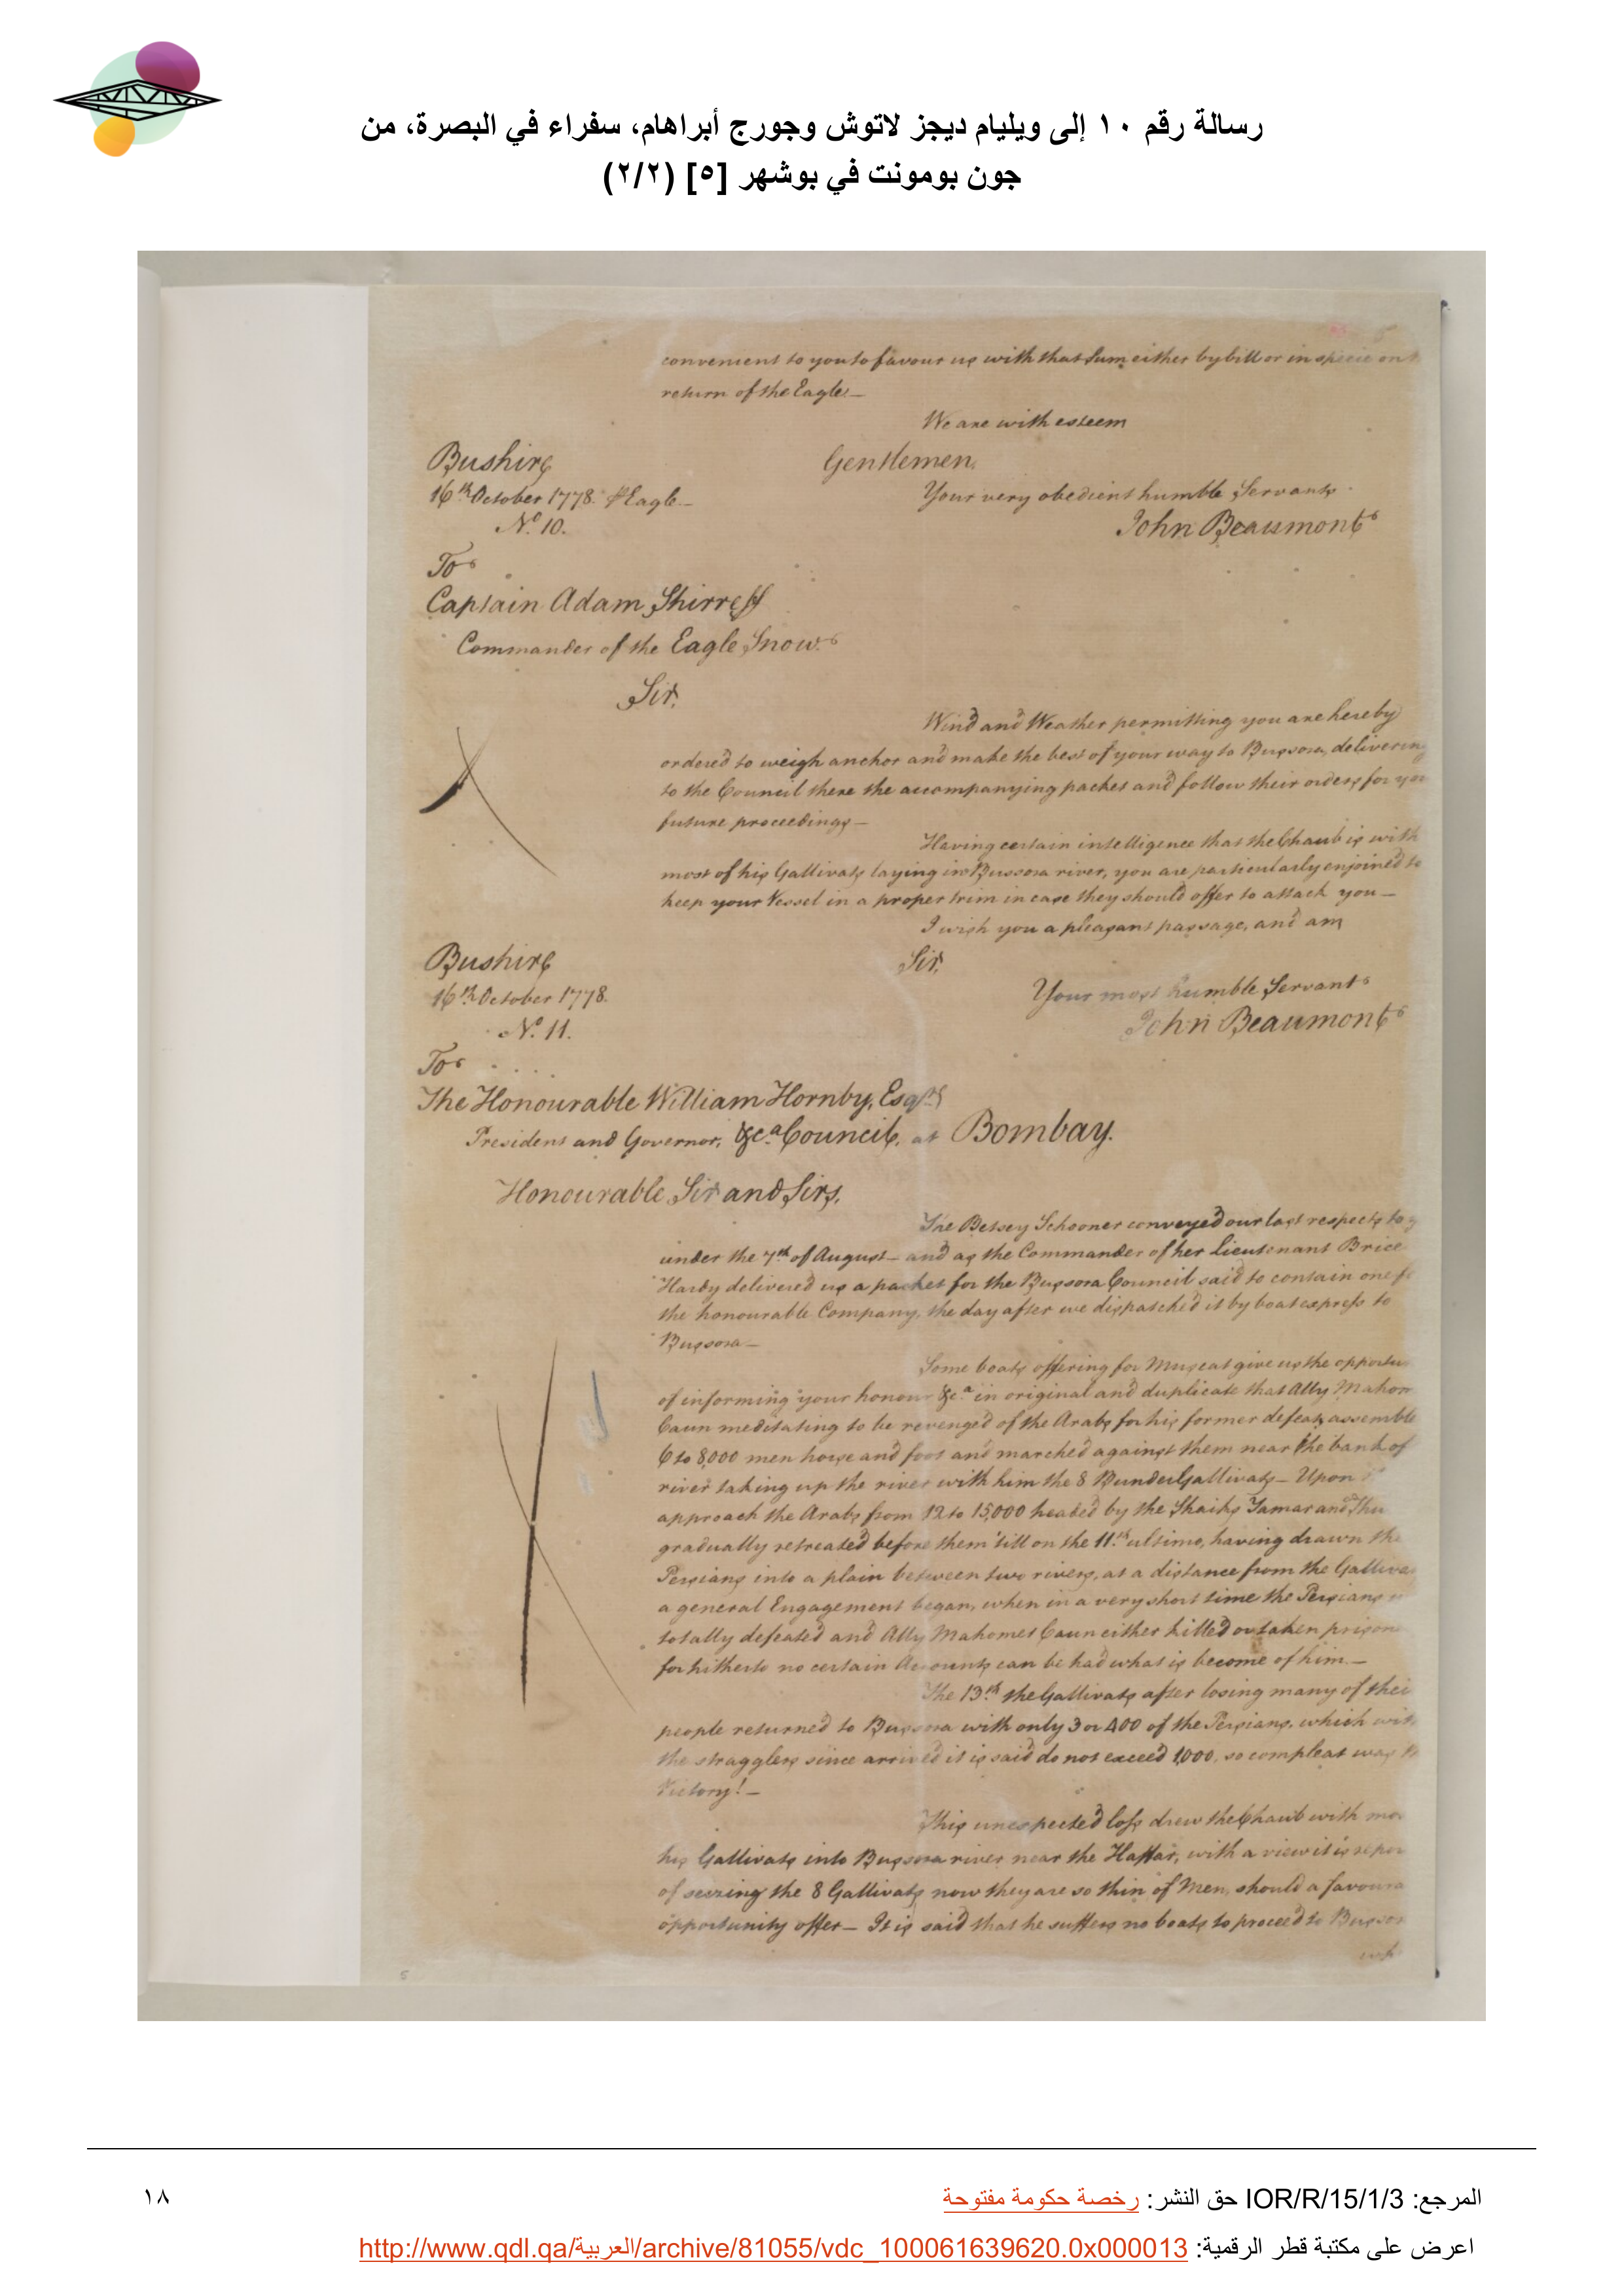 رسالة رقم ١٠ إلى ويليام ديجز لاتوش وجورج أبراهام، سفراء في البصرة، من
جون بومونت في بوشهر [٥] (٢/٢)
convenient to you to favour us with that Sum either by bill or in specie on
return of the Eagle—
We are with esteem
Bushire
Gentlemen,
16th October 1778. Eagle—
Your very obedient humble Servants
No. 10.
John Beaumont
To
Captain Adam Shirreff
Commander of the Eagle Snow.
Sir,
Wind and Weather permitting you are hereby
ordered to weigh anchor and make the best of your way to Bussora, delivering
to the Council there the accompanying packet and follow their orders for you
future proceedings—
Having certain intelligence that the Chaub is with
most of his Gallivats laying in Bussora river, you are particularly enjoined to
keep your Vessel in a proper trim in case they should offer to attack you—
I wish you a pleasant passage, and am
Bushire
Sir,
16th October 1778.
Your most humble Servant
No. 11.
John Beaumont
To
The Honourable William Hornby, Esqr.
President and Governor, &ca. Council, at Bombay.
Honourable Sir and Sirs,
The Betsey Schooner conveyed our last respects to
under the 7th of August— and as the Commander of her Lieutenant Brice
Hardy delivered us a packet for the Bussora Council said to contain one
the honourable Company, the day after we dispatched it by boat express to
Bussora—
Some boats offering for Muscat give us the opportu
of informing your honour &ca. in original and duplicate that Ally Mahom
Caun meditating to be revenged of the Arabs for his former defeat, assemble
6 to 8,000 men horse and foot and marched against them near the bank of
river taking up the river with him the 8 Bunder Gallivats— Upon
approach the Arabs from 12 to 15,000 headed by the Shaiks Tamar and
gradually retreated before them till on the 11th ultimo, having drawn the
Persians into a plain between two rivers, at a distance from the Galliva
a general Engagement began, when in a very short time the Persians
totally defeated and Ally Mahomet Caun either killed or taken prison
for hitherto no certain Accounts can be had what is become of him.—
The 13th the Gallivats after losing many of thei
people returned to Bussora with only 3 or 400 of the Persians, which wit
the stragglers since arrived it is said do not exceed 1,000, so compleat was
Victory!—
This unexpected loss drew the Chaub with mo
his Gallivats into Bussora river near the Haffar, with a view it is repor
of seizing the 8 Gallivats now they are so thin of Men, should a favoura
opportunity offer— It is said that he suffers no boats to proceed to Bussor
المرجع: IOR/R/15/1/3 حق النشر: رخصة حكومة مفتوحة
١٨
اعرض على مكتبة قطر الرقمية: http://www.qdl.qa/العربية/archive/81055/vdc_100061639620.0x000013